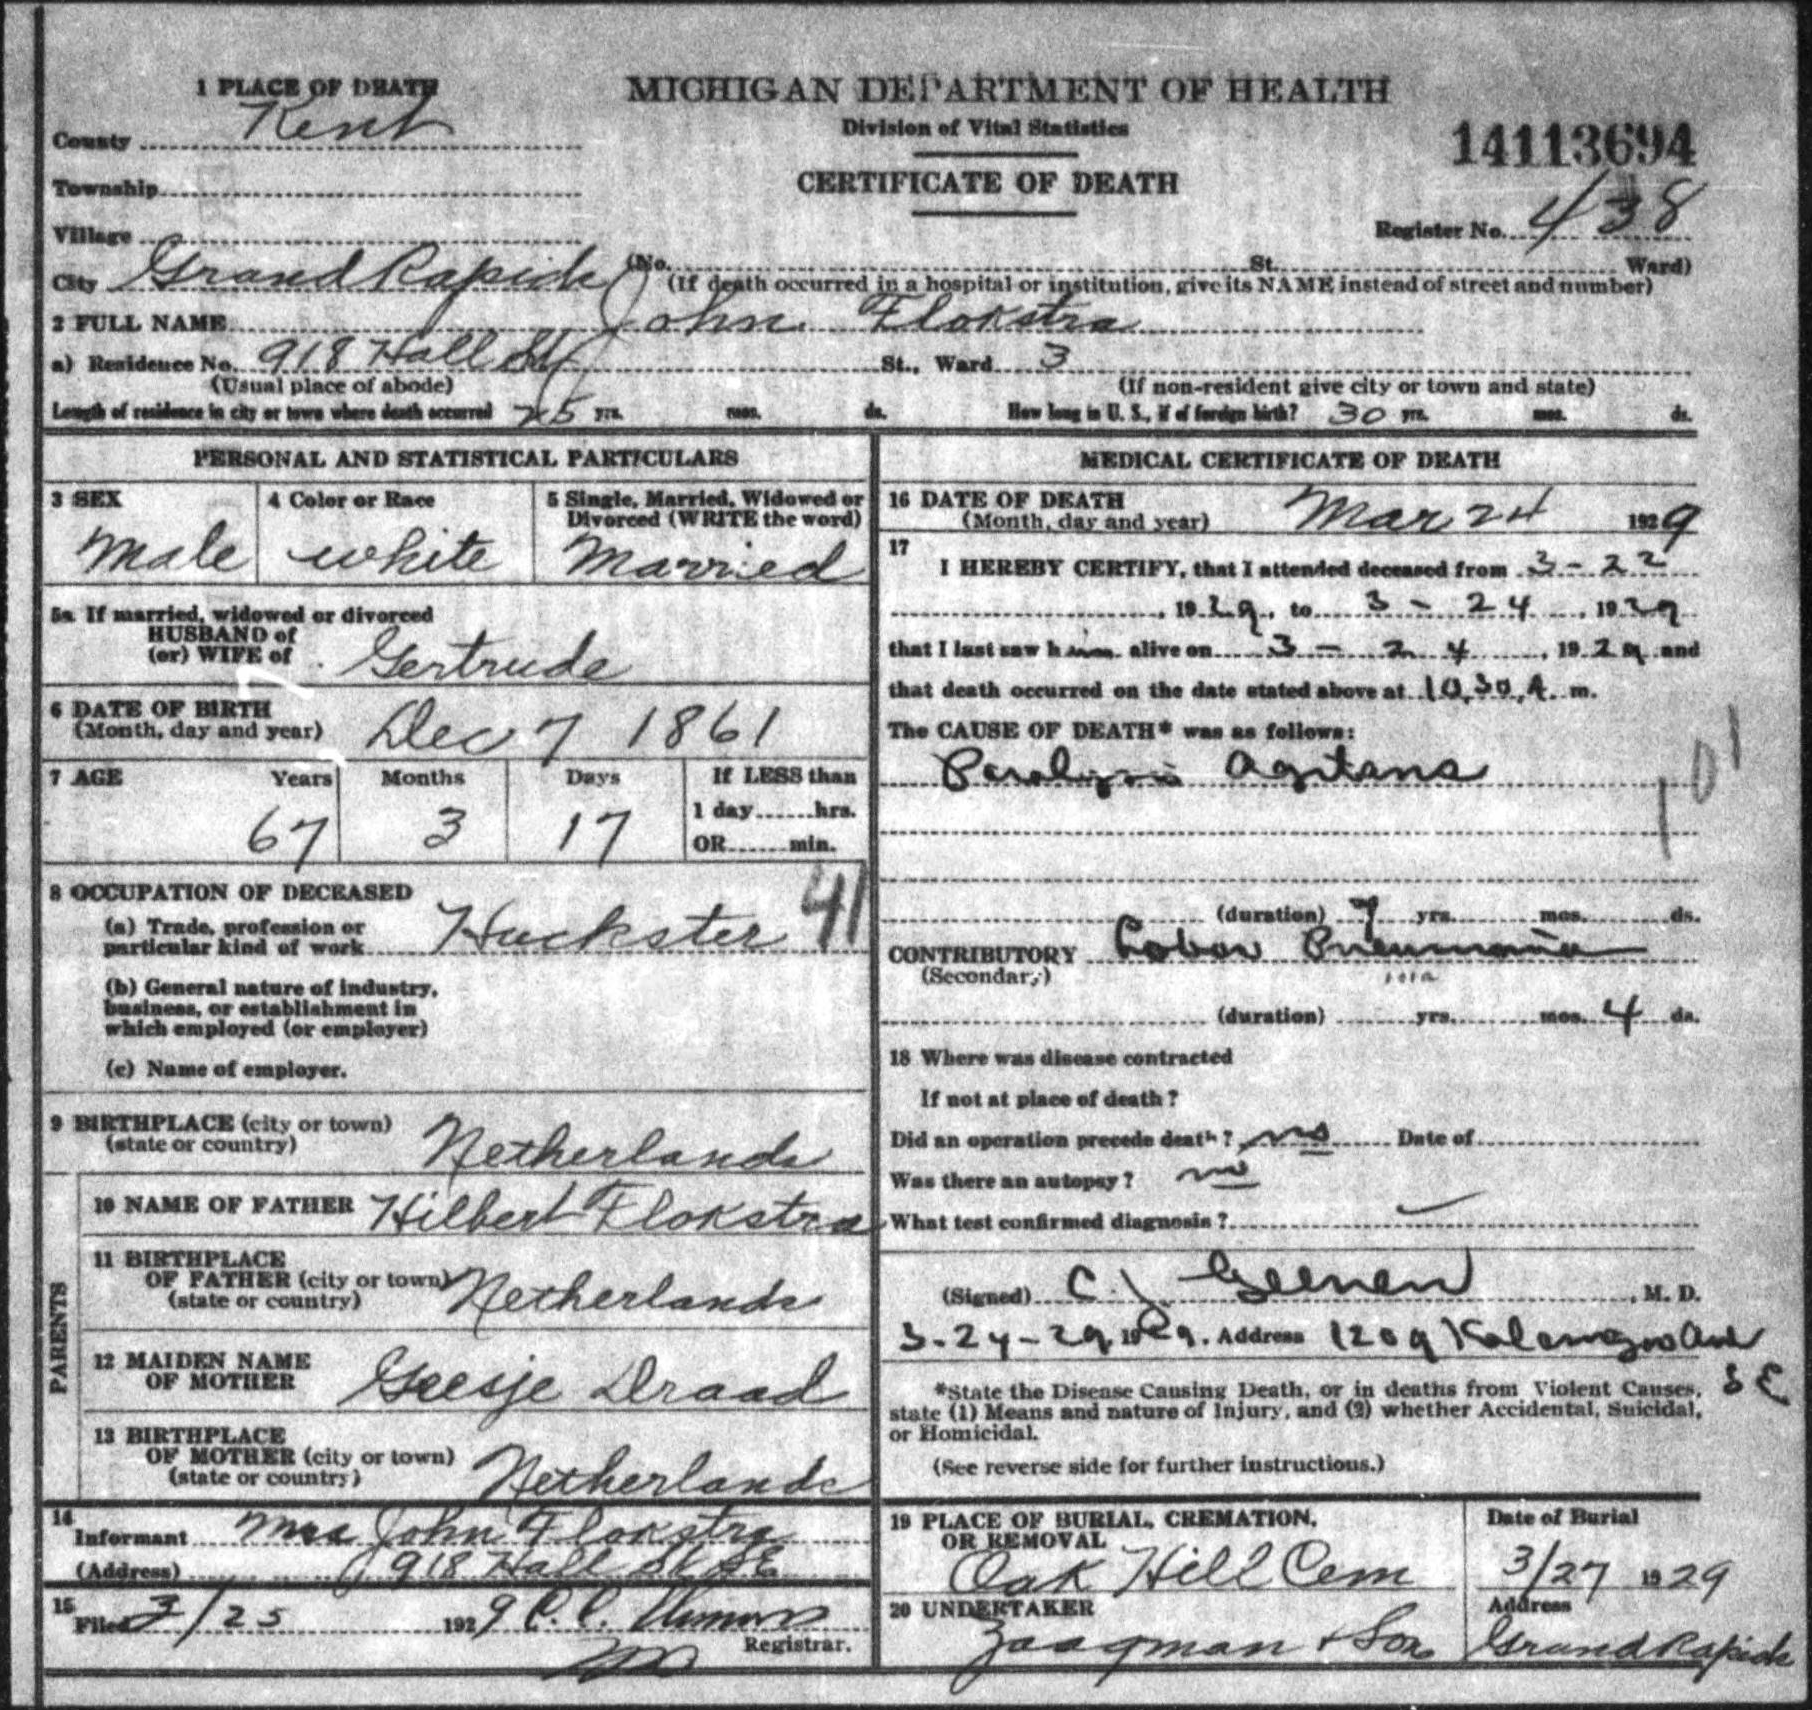 1 PLACE OF DEATH
MICHIGAN DEPARTMENT OF HEALTH
Division of Vital Statistics
14113694
County Kent
CERTIFICATE OF DEATH
Township
Register No. 438
Village
City Grand Rapids (No. St. Ward)
(If death occurred in a hospital or institution, give its NAME instead of street and number)
2 FULL NAME John Flokstra
a) Residence No. 918 Hall St St., Ward 3
(Usual place of abode) (If non-resident give city or town and state)
Length of residence in city or town where death occurred 25 yrs. mos. ds. How long in U. S., if of foreign birth? 30 yrs. mos. ds.
PERSONAL AND STATISTICAL PARTICULARS
3 SEX
Male
4 Color or Race
white
5 Single, Married, Widowed or
Divorced (WRITE the word)
Married
5a If married, widowed or divorced
HUSBAND of
(or) WIFE of Gertrude
6 DATE OF BIRTH
(Month, day and year) Dec 7 1861
7 AGE Years Months Days If LESS than
1 day hrs.
67 3 17
OR min.
8 OCCUPATION OF DECEASED
41
(a) Trade, profession or
particular kind of work Huckster
(b) General nature of industry,
business, or establishment in
which employed (or employer)
(c) Name of employer.
9 BIRTHPLACE (city or town)
(state or country) Netherlands
PARENTS
10 NAME OF FATHER Hilbert Flokstra
11 BIRTHPLACE
OF FATHER (city or town)
(state or country) Netherlands
12 MAIDEN NAME
OF MOTHER Geesje Draad
13 BIRTHPLACE
OF MOTHER (city or town)
(state or country) Netherlands
14
Informant Mrs John Flokstra
(Address) 918 Hall St SE
15
Filed 3/25 1929 C. C.
Registrar.
MEDICAL CERTIFICATE OF DEATH
16 DATE OF DEATH
(Month, day and year) Mar 24 1929
17
I HEREBY CERTIFY, that I attended deceased from 3-22
, 1929, to 3-24, 1929
that I last saw him alive on 3-24, 1929 and
that death occurred on the date stated above at 10.30 A. m.
The CAUSE OF DEATH* was as follows:
Paralysis Agitans
(duration) 7 yrs. mos. ds.
CONTRIBUTORY Lobar Pneumonia
(Secondary)
(duration) yrs. mos. 4 ds.
18 Where was disease contracted
If not at place of death?
Did an operation precede death? no Date of
Was there an autopsy? no
What test confirmed diagnosis?
(Signed) C. J. Geenen, M. D.
3-24-29 1929. Address 1209 Kalamazoo Ave
S E
*State the Disease Causing Death, or in deaths from Violent Causes,
state (1) Means and nature of Injury, and (2) whether Accidental, Suicidal,
or Homicidal.
(See reverse side for further instructions.)
19 PLACE OF BURIAL, CREMATION,
OR REMOVAL
Oak Hill Cem
Date of Burial
3/27 1929
20 UNDERTAKER
Zaagman & Son
Address
Grand Rapids